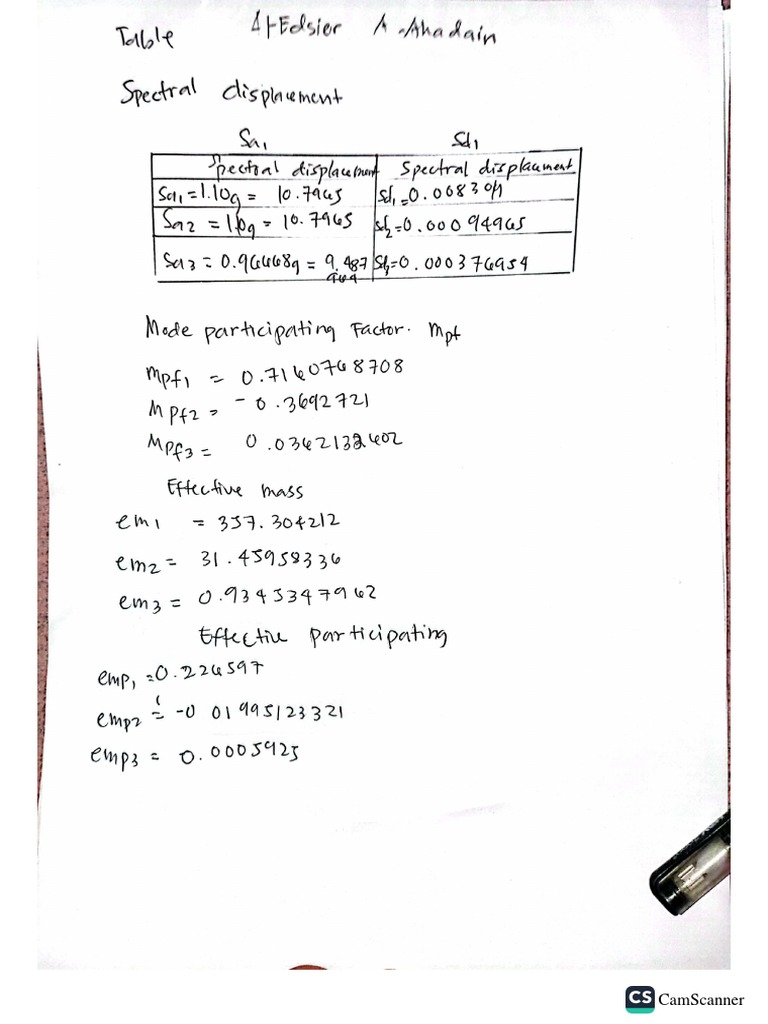 Table
Spectral displacement
Sa1 Sd1
Spectral displacement Spectral displacement
Sa1 = 1.10g = 10.7965 Sd1 = 0.0083
Sa2 = 10.7965 Sd2 = 0.00094965
Sa3 = 0.96668g = 9.487 Sd3 = 0.000376954
Mode participating Factor. Mpf
Mpf1 = 0.7160768708
Mpf2 = -0.3692721
Mpf3 = 0.0362132602
Effective mass
em1 = 357.304212
em2 = 31.45958336
em3 = 0.9345347962
Effective participating
emp1 = 0.226597
emp2 = -0 01995123321
emp3 = 0.0005925
CS CamScanner